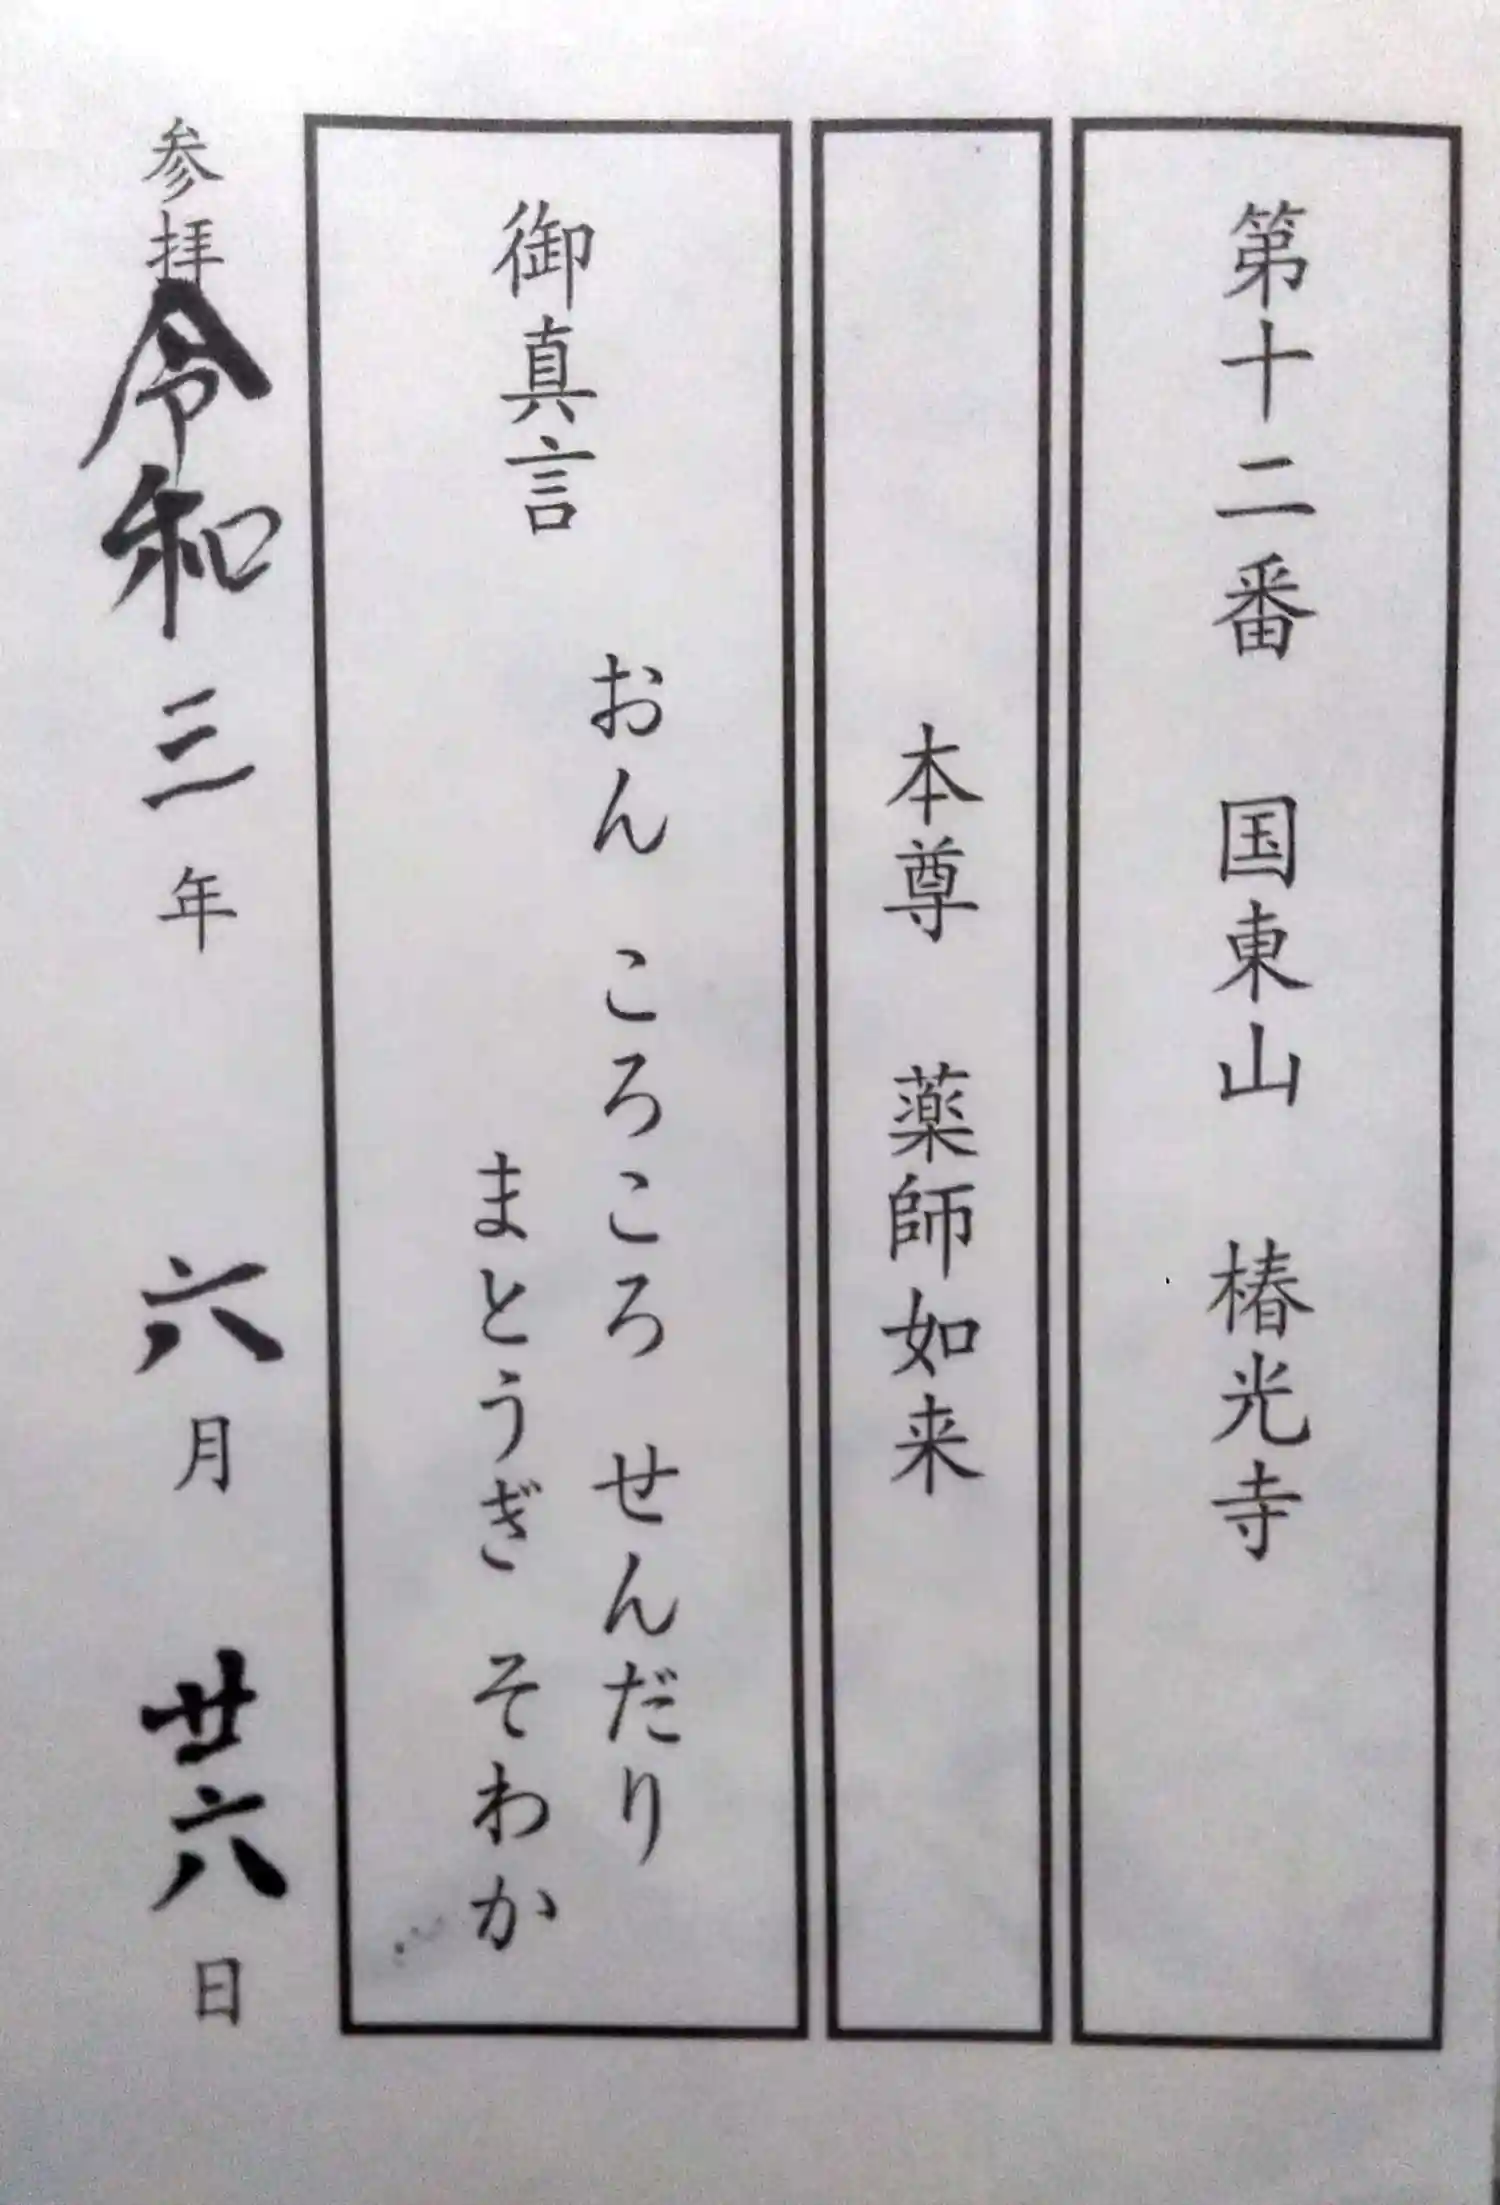 第十二番 国東山 椿光寺
本尊 薬師如来
御真言 おん ころころ せんだり
まとうぎ そわか
参拝 令和三年 六月 廿六日